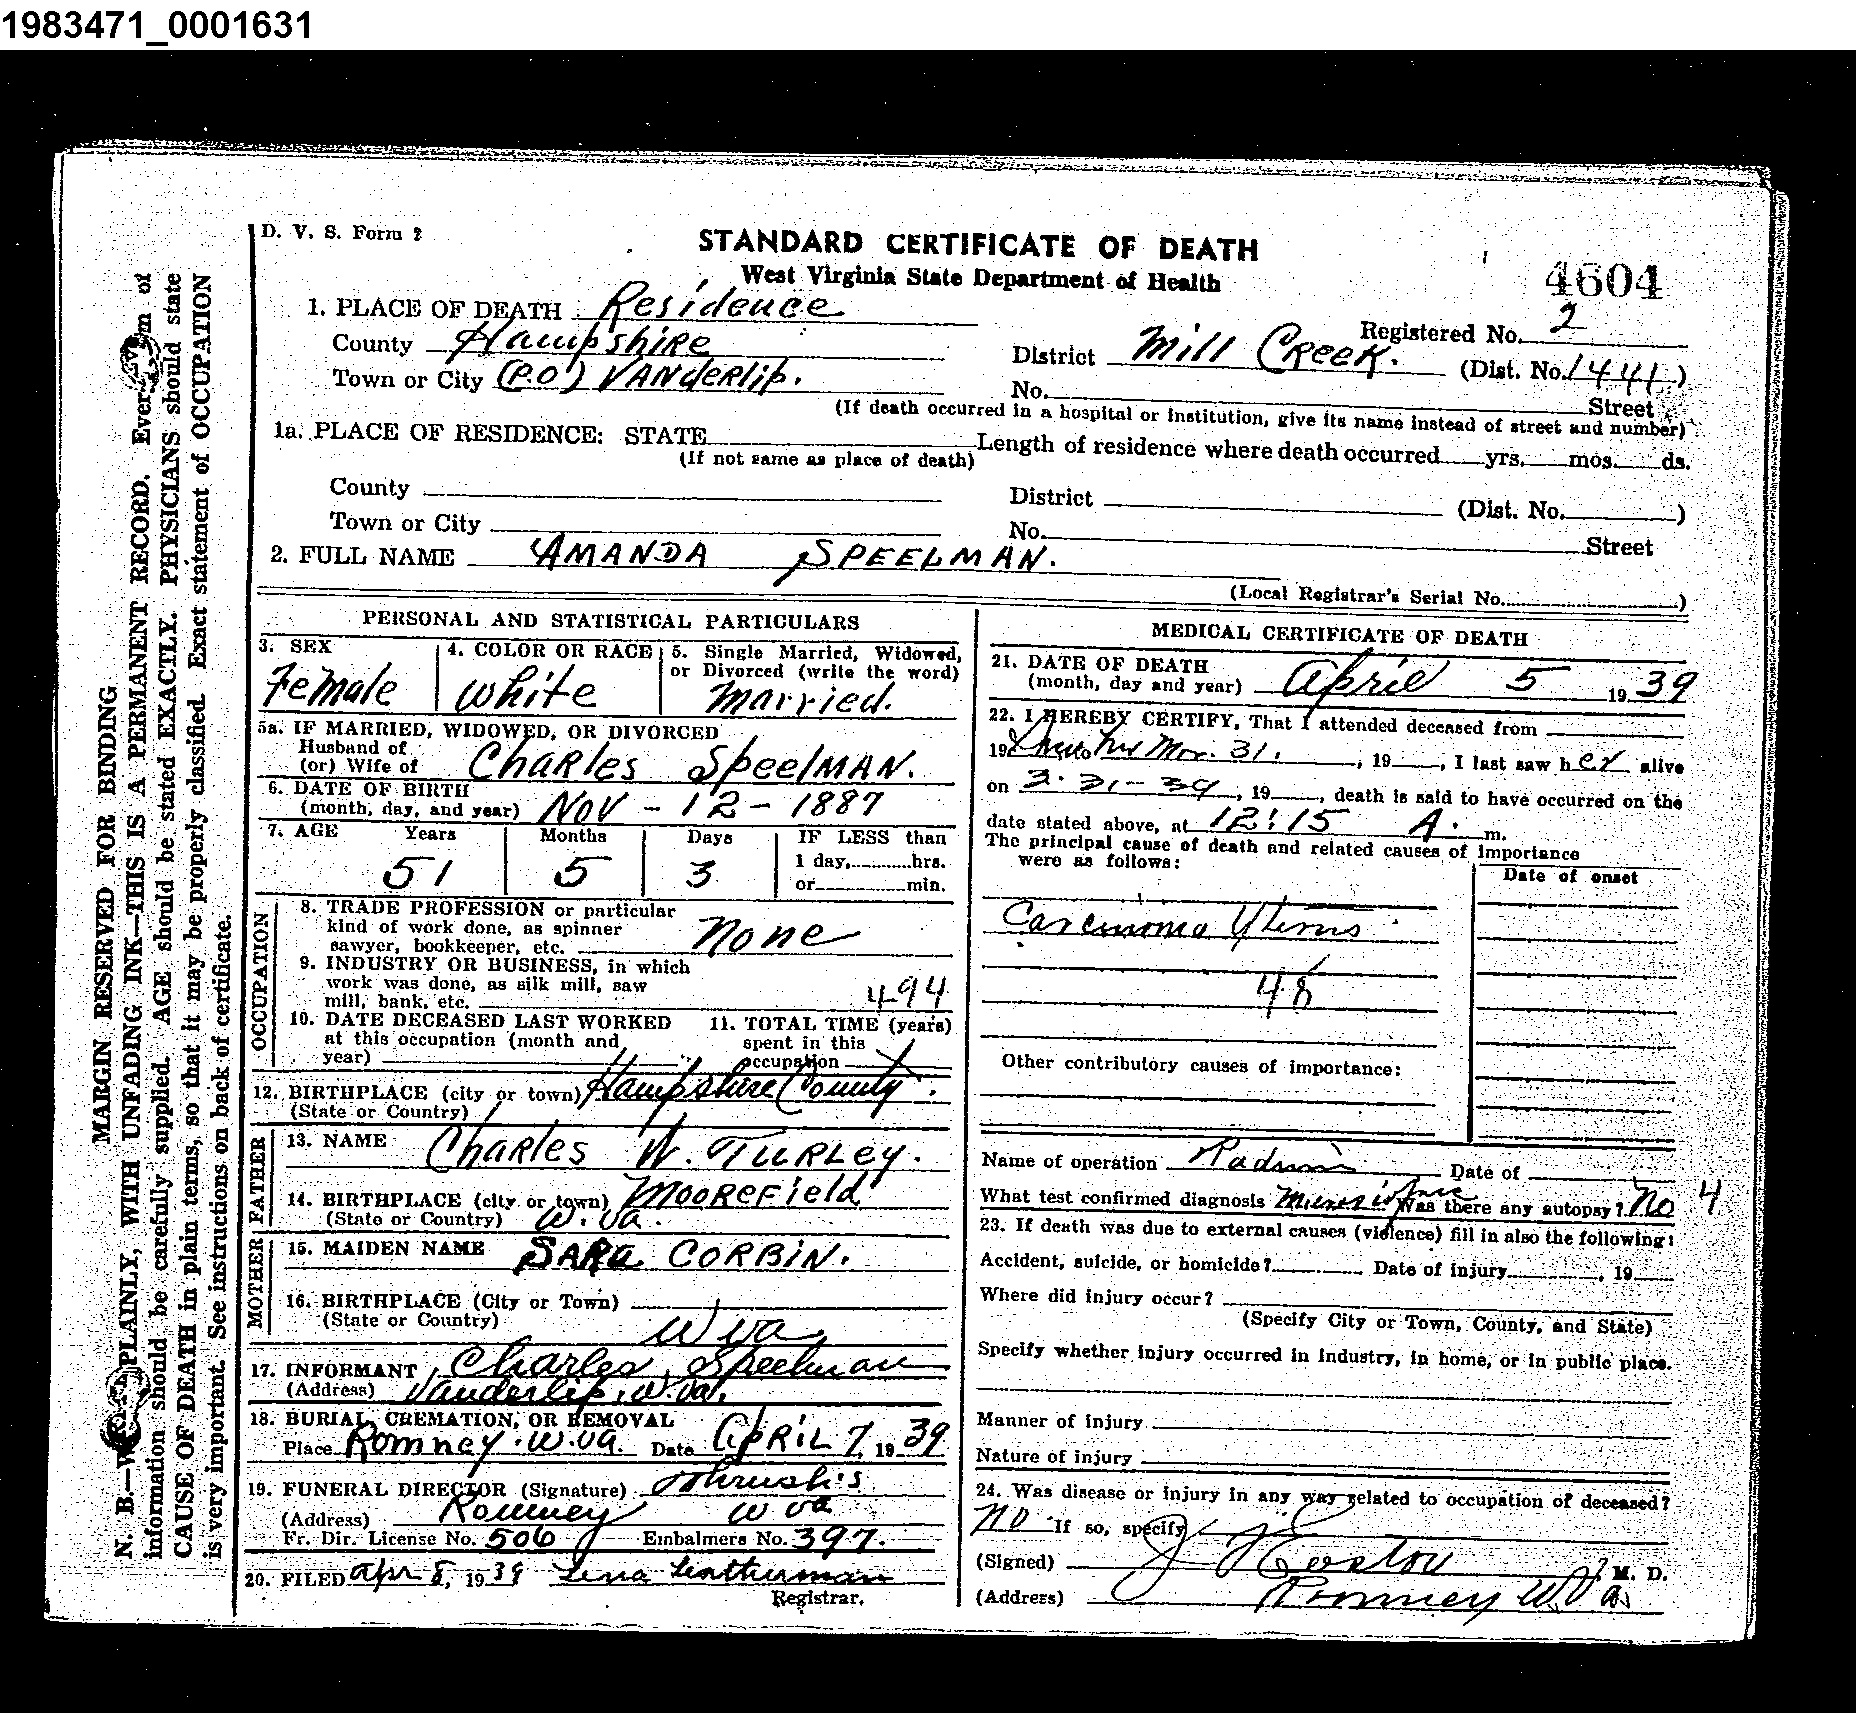 1983471_0001631
D. V. S. Form 2
STANDARD CERTIFICATE OF DEATH
West Virginia State Department of Health
4604
1. PLACE OF DEATH Residence
Registered No. 2
County Hampshire
District Mill Creek. (Dist. No. 1441.)
Town or City (P.O) Vanderlip.
No. Street
(If death occurred in a hospital or institution, give its name instead of street and number)
1a. PLACE OF RESIDENCE: STATE
Length of residence where death occurred yrs. mos. ds.
(If not same as place of death)
County
District (Dist. No. )
Town or City
No. Street
2. FULL NAME AMANDA SPEELMAN.
(Local Registrar's Serial No. )
PERSONAL AND STATISTICAL PARTICULARS
3. SEX
Female
4. COLOR OR RACE
White
5. Single Married, Widowed,
or Divorced (write the word)
Married.
5a. IF MARRIED, WIDOWED, OR DIVORCED
Husband of
(or) Wife of Charles Speelman.
6. DATE OF BIRTH
(month, day, and year) Nov - 12 - 1887
7. AGE Years Months Days IF LESS than
51 5 3 1 day, hrs.
or min.
OCCUPATION
8. TRADE PROFESSION or particular
kind of work done, as spinner
sawyer, bookkeeper, etc. None
9. INDUSTRY OR BUSINESS, in which
work was done, as silk mill, saw
mill, bank, etc. 494
10. DATE DECEASED LAST WORKED
at this occupation (month and
year)
11. TOTAL TIME (years)
spent in this
occupation
12. BIRTHPLACE (city or town) Hampshire County.
(State or Country)
FATHER
13. NAME Charles W. Turley.
14. BIRTHPLACE (city or town) Moorefield
(State or Country) W. Va.
MOTHER
15. MAIDEN NAME Sara Corbin.
16. BIRTHPLACE (City or Town)
(State or Country) W Va,
17. INFORMANT Charles Speelman
(Address) Vanderlip, W. Va.
18. BURIAL, CREMATION, OR REMOVAL
Place Romney. W. Va. Date April 7, 1939
19. FUNERAL DIRECTOR (Signature) Thrush's
(Address) Romney W Va
Fr. Dir. License No. 506 Embalmers No. 397.
20. FILED Apr 8, 1939 Lena Leatherman
Registrar.
MEDICAL CERTIFICATE OF DEATH
21. DATE OF DEATH
(month, day and year) April 5 1939
22. I HEREBY CERTIFY, That I attended deceased from
19 Mar. 31. , 19 , I last saw her alive
on 3-31-39, 19 , death is said to have occurred on the
date stated above, at 12:15 A. m.
The principal cause of death and related causes of importance
were as follows:
Date of onset
Carcinoma Uterus
48
Other contributory causes of importance:
Name of operation Radium Date of
What test confirmed diagnosis Was there any autopsy? No 4
23. If death was due to external causes (violence) fill in also the following:
Accident, suicide, or homicide? Date of injury , 19
Where did injury occur?
(Specify City or Town, County, and State)
Specify whether injury occurred in industry, in home, or in public place.
Manner of injury
Nature of injury
24. Was disease or injury in any way related to occupation of deceased?
No If so, specify
(Signed) M. D.
(Address) Romney W Va
MARGIN RESERVED FOR BINDING
N. B.—WRITE PLAINLY, WITH UNFADING INK—THIS IS A PERMANENT RECORD. Every item of
information should be carefully supplied. AGE should be stated EXACTLY. PHYSICIANS should state
CAUSE OF DEATH in plain terms, so that it may be properly classified. Exact statement of OCCUPATION
is very important. See instructions on back of certificate.